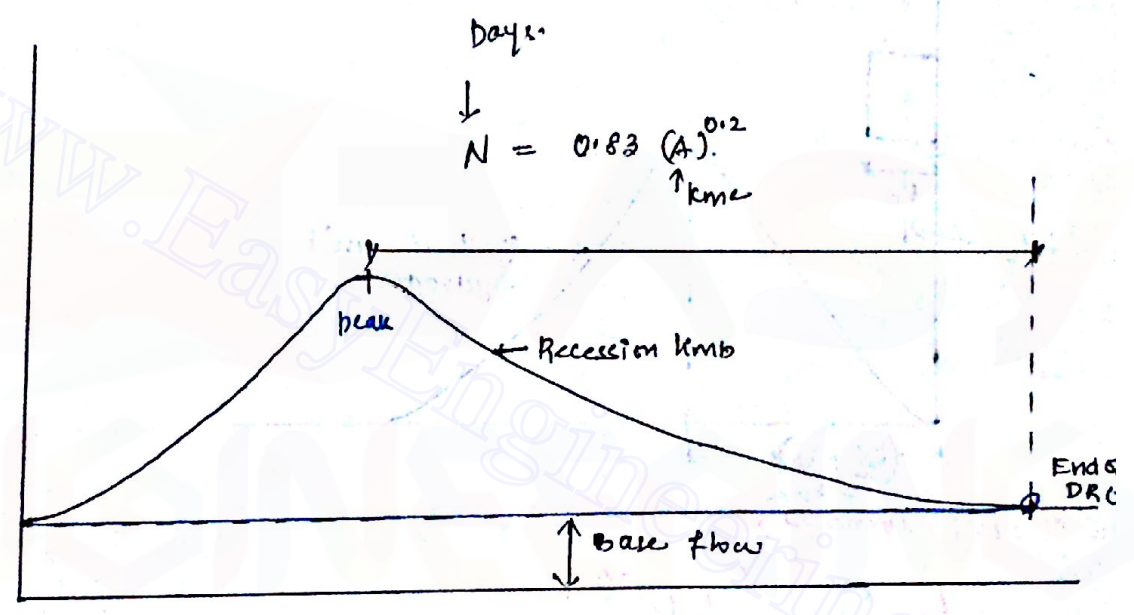 Days.
N = 0.83 (A)^0.2
kme
peak
Recession limb
End o
DRO
Base flow
www.EasyEngineerin